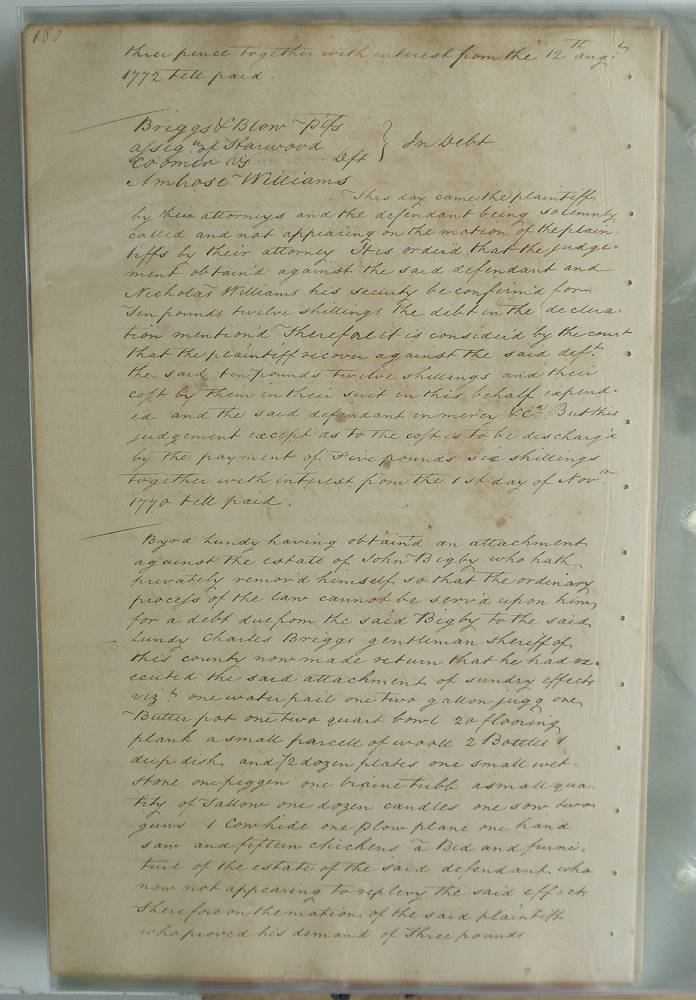 180
three pence together with interest from the 12th Augt
1772 till paid.
Briggs & Blow Plfs
assignees of Harwood
Coomer vs Deft } In Debt
Ambrose Williams
This day came the plaintiffs
by their attorneys and the defendant being solemnly
called and not appearing on the motion of the plain-
tiffs by their attorney It is orderd that the judge-
ment obtain'd against the said defendant and
Nicholas Williams his security be confirm'd for
Ten pounds twelve shillings the debt in the declara-
tion mention'd Therefore it is consider'd by the court
that the plaintiff recover against the said deft.
the said ten pounds twelve shillings and their
cost by them in their suit in this behalf expend-
ed and the said defendant in mercy &ca But this
judgement except as to the cost is to be discharg'd
by the payment of Five pounds six shillings
together with interest from the 1st day of Novr
1770 till paid.
Byrd Lundy having obtain'd an attachment
against the estate of John Bigby who hath
privately remov'd himself so that the ordinary
process of the law cannot be serv'd upon him
for a debt due from the said Bigby to the said
Lundy Charles Briggs gentleman sheriff of
this county now made return that he had ex-
ecuted the said attachment of sundry effects
vizt one water pail one two gallon jugg one
Butter pot one two quart bowl 20 flooring
plank a small parcell of wooll 2 Bottles 1
deep dish and 1/2 dozen plates one small wet-
stone one piggen one brine tubb a small quan
tity of Tallow one dozen candles one sow two
guns 1 Cowhide one plow plane one hand
saw and fifteen chickens a Bed and furni-
ture of the estate of the said defendant who
now not appearing to replevy the said effects
Therefore on the motion of the said plaintiff
who proved his demand of Three pounds